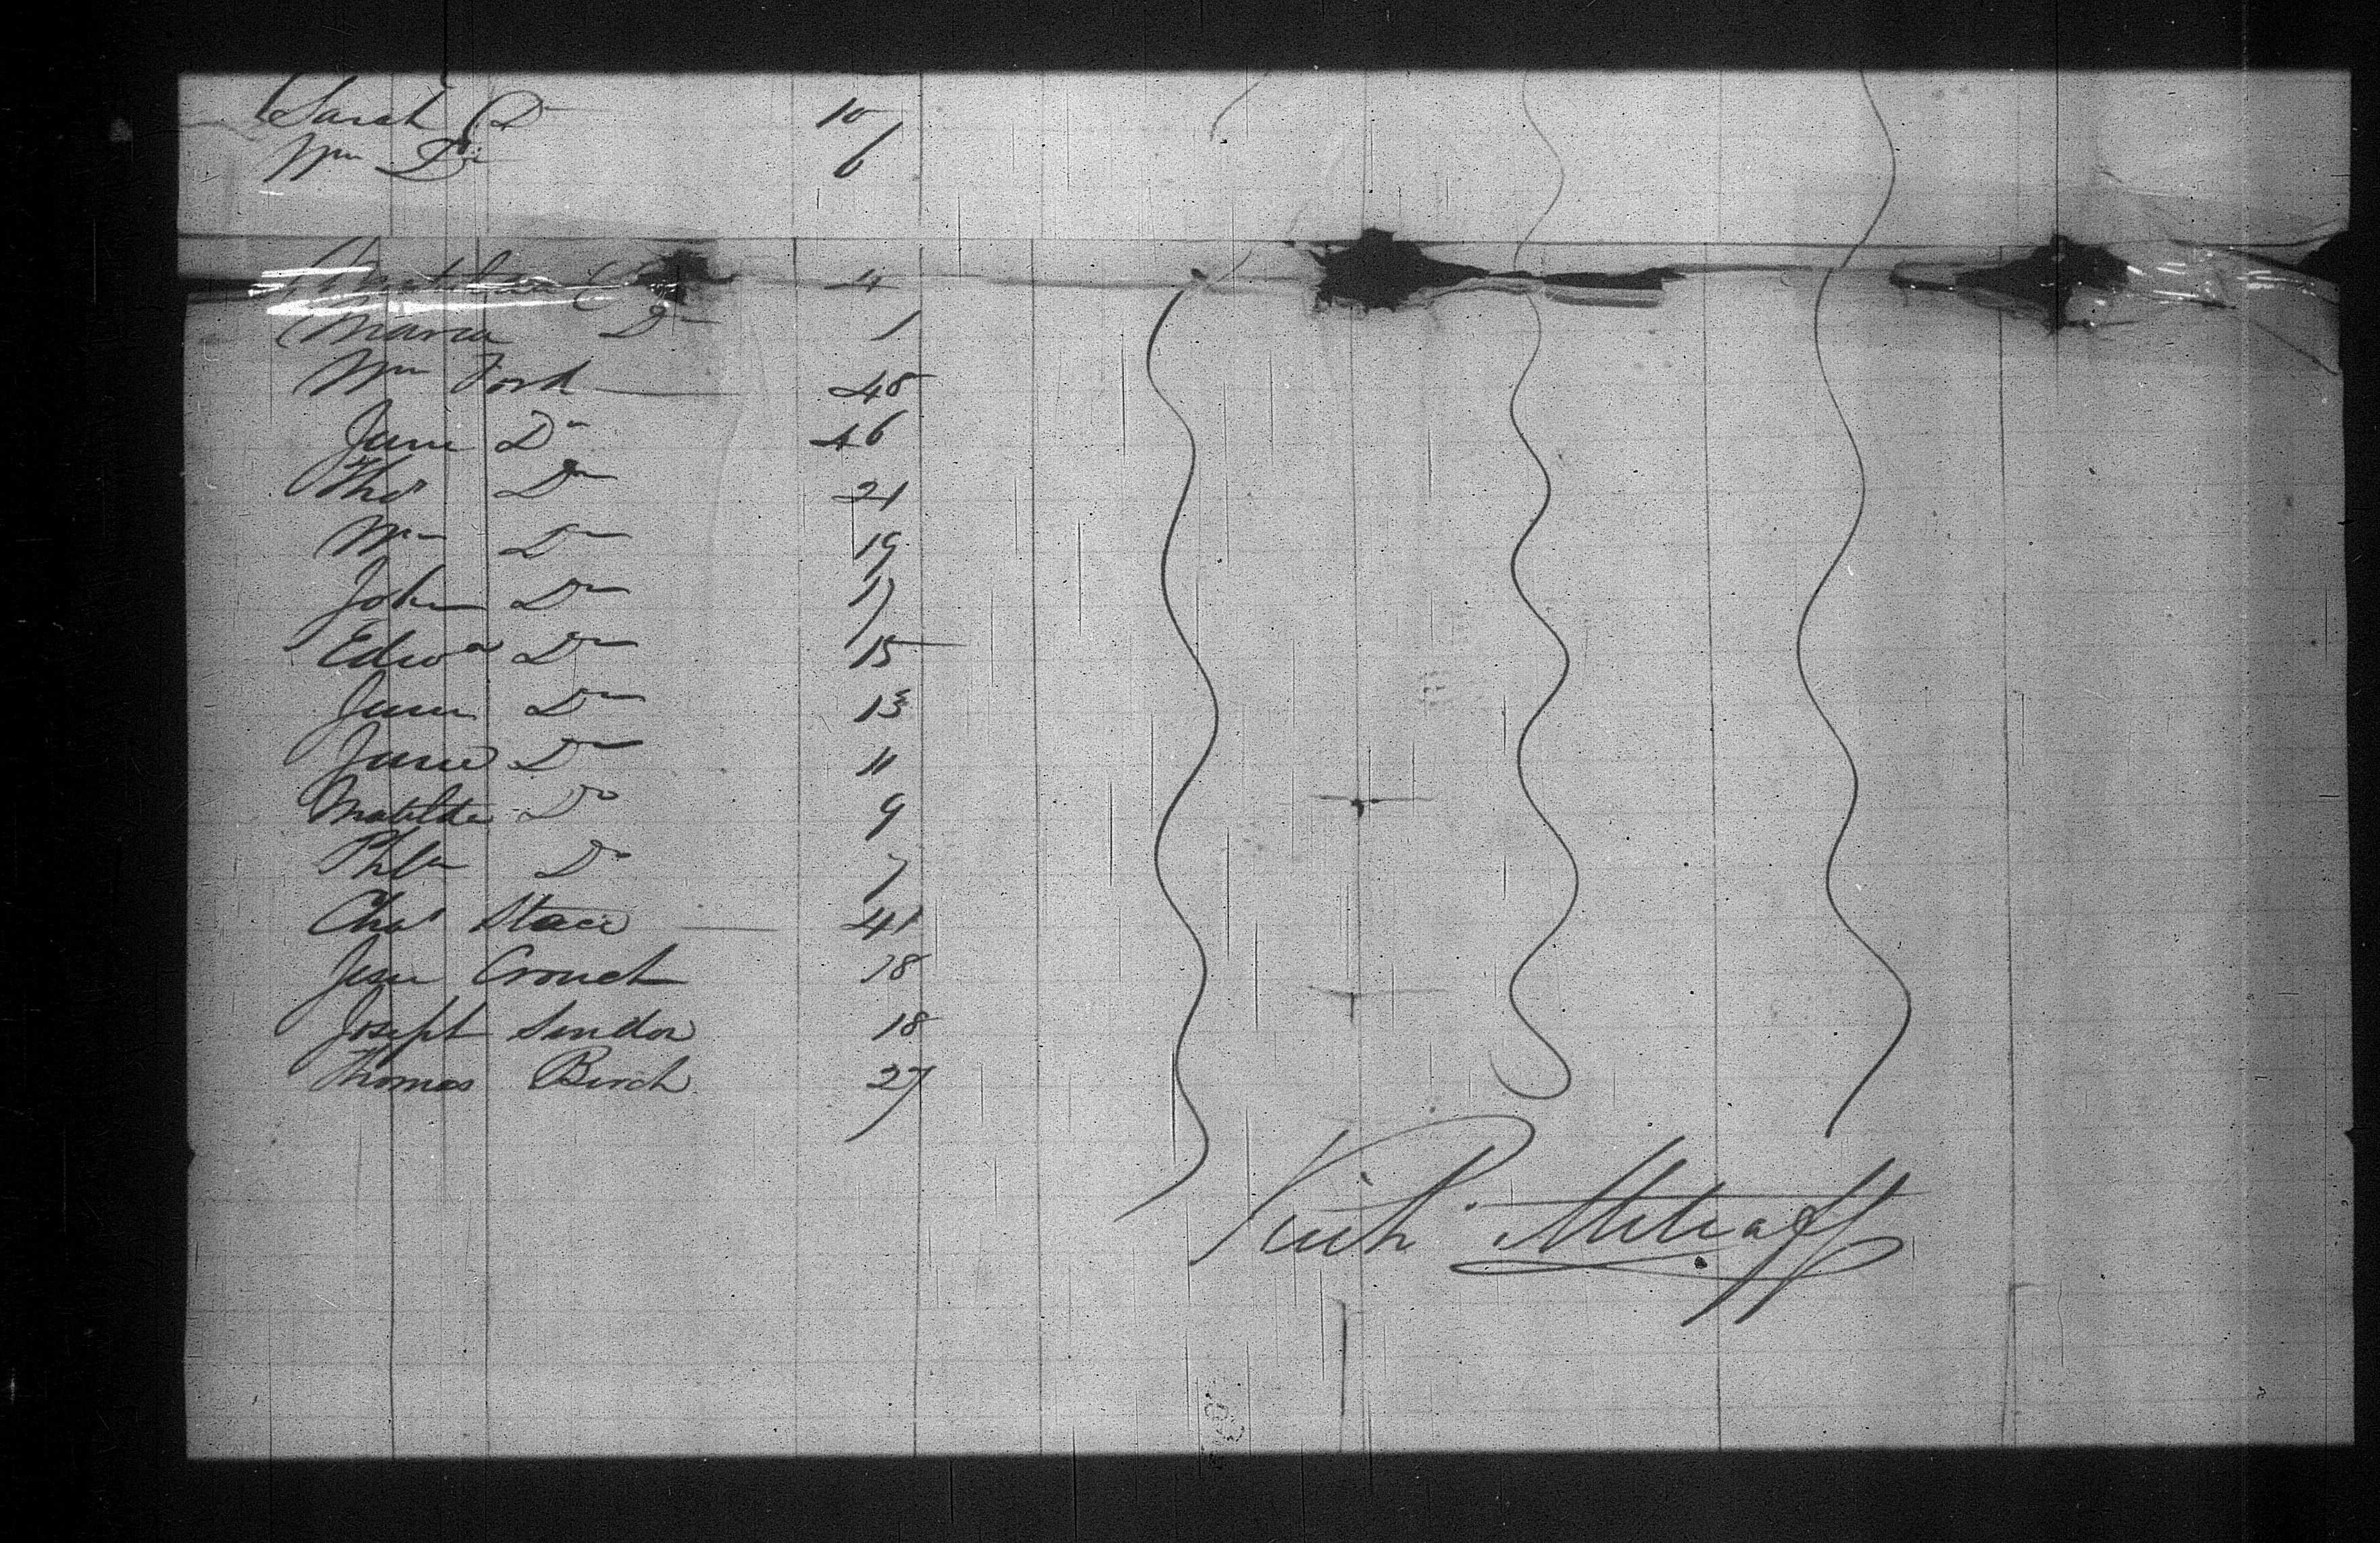 Sarah Do 10
Wm Do 6
4
Maria Do 1
Wm Ford 48
Jane Do 46
Thos Do 21
Wm Do 19
John Do 17
Edwd Do 15
Do 13
Jane Do 11
Matilda Do 9
Do 7
Chas Stace 41
Crouch 18
Joseph 18
Thomas Birch 27
Metcalf